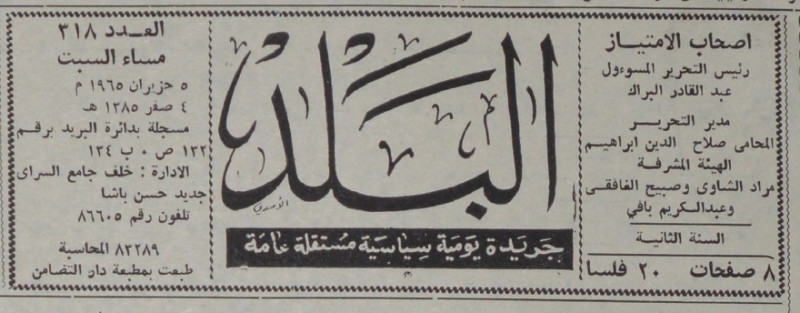 اصحاب الامتياز
رئيس التحرير المسوءول
عبد القادر البراك
مدير التحرير
المحامى صلاح الدين ابراهيم
الهيئة المشرفة
مراد الشاوى وصبيح الغافقى
وعبدالكريم بافي
السنة الثانية
٨ صفحات ٢٠ فلسا
البلد
جريدة يومية سياسية مستقلة عامة
العدد ٣١٨
مساء السبت
٥ حزيران ١٩٦٥ م
٤ صفر ١٣٨٥ هـ
مسجلة بدائرة البريد برقم
١٣٢ ص ٠ ب ١٣٤
الادارة : خلف جامع السراى
جديد حسن باشا
تلفون رقم ٨٦٦٠٥
٨٣٢٨٩ المحاسبة
طبعت بمطبعة دار التضامن